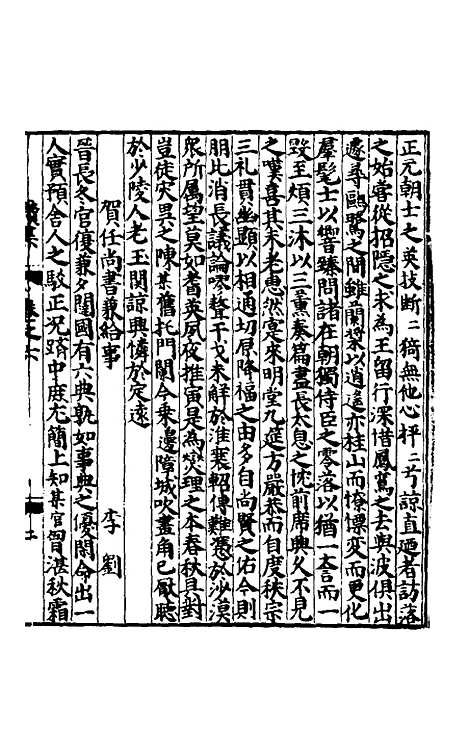 正元朝士之英技斷二猗無他心抨二兮諒直廼者訪落
之始嘗從招隱之求為王留行深惜鳳鸞之去與波俱出
遽尋鷗鷺之閒雖蘭槳以逍遙亦桂山而憭慄變而更化
羣髦士以響臻問諸在朝獨侍臣之零落以猶一大吝而一
毀至煩三沐以三熏奏篇盡長太息之忱前席興久不見
之嘆喜其未老惠然寔來明堂九筵方嚴恭而自度秩宗
三禮貫幽顯以相通切原降福之由多自尚賢之佑今則
朋比消長議論琴聲干戈未解於淮襄軺傳難憑於沙漠
衆所属望莫如耆英夙夜推宙是為爕理之本春秋具對
豈徒灾異之陳某舊托門闌今乗邊障城吹畫角已厭聴
於少陵人老玉関諒興憐於定逺
賀任尚書兼給事 李劉
晉長冬官復兼夕闥國有六典孰如事典之優閤命出一
人實預舍人之駮正况躋中庭尤簡上知某官曾湛秋霜